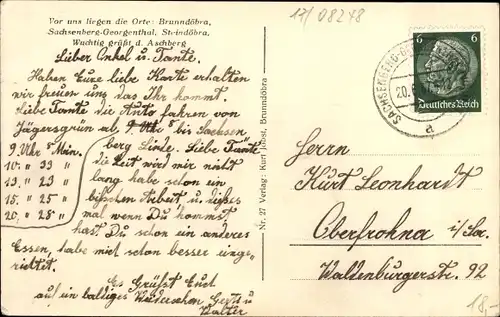 Vor uns liegen die Orte: Brunndöbra,
Sachsenberg-Georgenthal, Steindöbra,
Wuchtig grüßt d. Aschberg
Lieber Onkel u. Tante.
Haben Eure liebe Karte erhalten
wir freuen uns das Ihr kommt.
Liebe Tante die Auto fahren von
Jägersgrün ab, 9 Uhr 5 bis Sachsen
berg Linde. Liebe Tante
9 Uhr 5 Min.
10 " 33 "
13 " 23 "
15 " 25 "
20 " 25 "
die Zeit wird mir nicht
lang habe schon ein
bißchen Arbeit u. dießes
mal wenn Du kommst
hast Du schon ein anderes
Essen, habe mich schon besser einge-
richtet.
Es Grüßt Euch
auf ein baldiges Wiedersehen Gerti u
Walter
Nr. 27 Verlag: Kurt Jubst, Brunndöbra
17/08248
6 6
Deutsches Reich
SACHSENBERG-
20.
a
Herrn
Kurt Leonhardt
Oberfrohna i/Sa.
Waldenburgerstr. 92
18,-